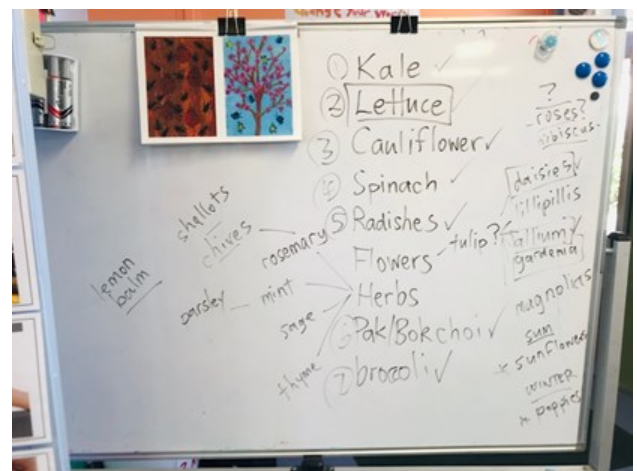 ① Kale ✓
② Lettuce ✓
③ Cauliflower ✓
④ Spinach ✓
⑤ Radishes ✓
Flowers - tulip?
Herbs
⑥ Pak/Bokchoi ✓
⑦ brocoli ✓
shallots
chives
rosemary
lemon
balm
parsley
mint
sage
thyme
?
roses?
hibiscus
daisies
lillipillis
allium
gardenia
magnolias
sum
* sunflowers
WINTER
* poppies